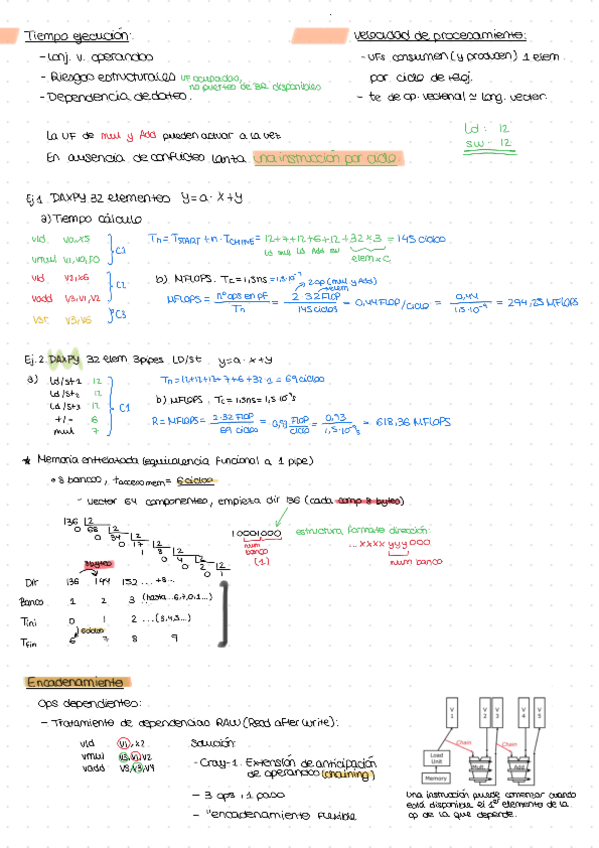 Tiempo ejecución:
- Lonj. v. operandos
- Riesgos estructurales UF ocupadas, no puertos de BR disponibles
- Dependencia de datos.
Velocidad de procesamiento:
- UFs consumen (y producen) 1 elem. por ciclo de reloj.
- te de op. vectorial ≃ long. vector.
La UF de mul y Add pueden actuar a la vez
En ausencia de conflictos lanza una instrucción por ciclo.
Ld: 12
sw: 12
Ej 1 DAXPY 32 elementos y=a·x+y.
a) Tiempo cálculo.
vld v0,x5
vmul v1,v0,f0
} C1
vld v2,x6
vadd v3,v1,v2
} C2
vst v3,x6
} C3
Tn = TSTART + n·TCHIME = 12+7+12+6+12+32×3 = 145 ciclos
ld mul ld Add sw elem×C
b) MFLOPS. Tc=1,5ns=1,5·10⁻⁹
2 op (mul y Add)
elem
MFLOPS = nº ops en pf / Tn = 2·32 FLOP / 145 ciclos = 0,44 FLOP/ciclo = 0,44 / 1,5·10⁻⁹ = 294,25 MFLOPS
Ej. 2. DAXPY 32 elem 3pipes LD/St. y=a·x+y
a)
Ld/st1 12
Ld/st2 12
Ld/st3 12
+/- 6
mul 7
} C1
Tn=12+12+12+7+6+32·1 = 69 ciclos
b) MFLOPS. Tc=1,5ns=1,5·10⁻⁹
R=MFLOPS= 2·32 FLOP / 69 ciclos = 0,93 FLOP / ciclo = 0,93 / 1,5·10⁻⁹s = 618,36 MFLOPS
★ Memoria entrelazada (equivalencia funcional a 1 pipe)
8 bancos, tacceso mem = 6 ciclos
- Vector 64 componentes, empieza dir 136 (cada comp 8 bytes)
136 |2
0 68 |2
0 34 |2
0 17 |2
1 8 |2
0 4 |2
0 2 |2
0 1
10001000
num banco
(1)
estructura formato dirección:
...xxxx yyy 000
num banco
8bytes
Dir 136 144 152 ... +8..
Banco 1 2 3 (hasta ..6,7,0,1...)
Tini 0 1 2 ...(3,4,5...)
6 ciclos
Tfin 6 7 8 9
Encadenamiento
Ops dependientes:
- Tratamiento de dependencias RAW (Read after write):
vld v1, x2
vmul v3,v1,v2
vadd v3,v3,v4
Solución:
- Cray-1. Extensión de anticipación de operandos (chaining)
- 3 ops, 1 paso
- "encadenamiento flexible
V 1
V 2
V 3
V 4
V 5
Chain
Chain
Load Unit
Mult.
Add
Memory
Una instrucción puede comenzar cuando
está disponible el 1er elemento de la
op de la que depende.